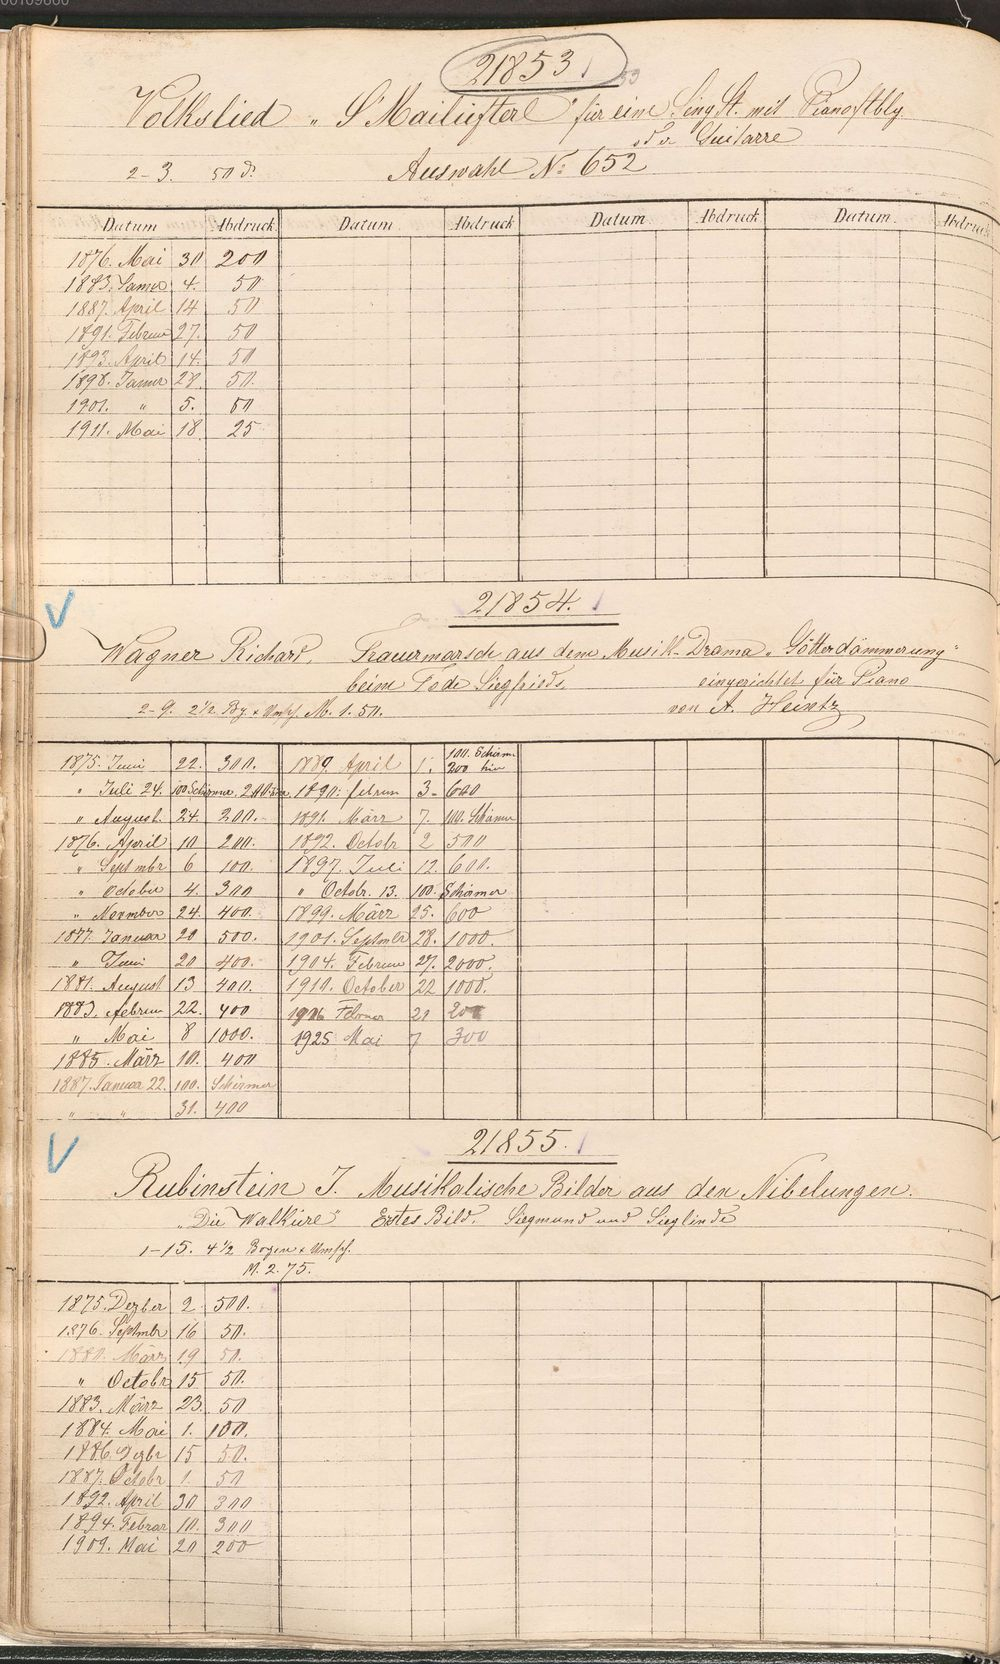 00109860
21853
53
Volkslied „S'Mailüfterl" für eine Singst. mit Pianoftblg.
oder Guitarre
2-3. 50 d. Auswahl No: 652
Datum Abdruck Datum Abdruck Datum Abdruck Datum Abdruck
1876. Mai 30 200
1883. Januar 4. 50
1887. April 14 50
1891. Februar 27. 50
1893. April 14. 50
1898. Januar 28. 50.
1901. " 5. 50
1911. Mai 18. 25
21854.
Wagner Richard. Trauermarsch aus dem Musik-Drama „Götterdämmerung"
beim Tode Siegfrieds, eingerichtet für Piano
2-9. 2½ Bg. + Umsch. M. 1.50. von A. Heintz
1875. Juni 22. 300. 1889. April 1. 100. Schirm 200 hier
" Juli 24. 100 Schirmer. 200 hier 1890. Februar 3- 600
" August 24. 200. 1891. März 7. 100. Schirmer
1876. April 10 200. 1892. Octobr 2 500
" Septembr 6 100. 1897. Juli 12. 600.
" October 4. 300 " Octobr. 13. 100. Schirmer
" November 24. 400. 1899. März 25. 600
1877. Januar 20 500. 1901. Septmbr 28. 1000.
" Juni 20 400. 1904. Februar 27. 2000.
1881. August 13 400. 1910. October 22 1000.
1883. Februar 22. 400 Februar 20 200
" Mai 8 1000. 1925 Mai 7 300
1885. März 10. 400
1887. Januar 22. 100. Schirmer
" " 31. 400
21855.
Rubinstein J. Musikalische Bilder aus den Nibelungen.
„Die Walküre" Erstes Bild. Siegmund und Sieglinde
1-15. 4½ Bogen + Umsch.
M. 2.75.
1875. Dezber 2. 500.
1876. Septmbr 16 50.
1880. März 19 50.
" Octobr 15 50.
1883. März 23. 50
1884. Mai 1. 100.
1886. Dzbr 15 50.
1887. Octobr 1. 50
1892. April 30 300
1894. Februar 10. 300
1909. Mai 20 200